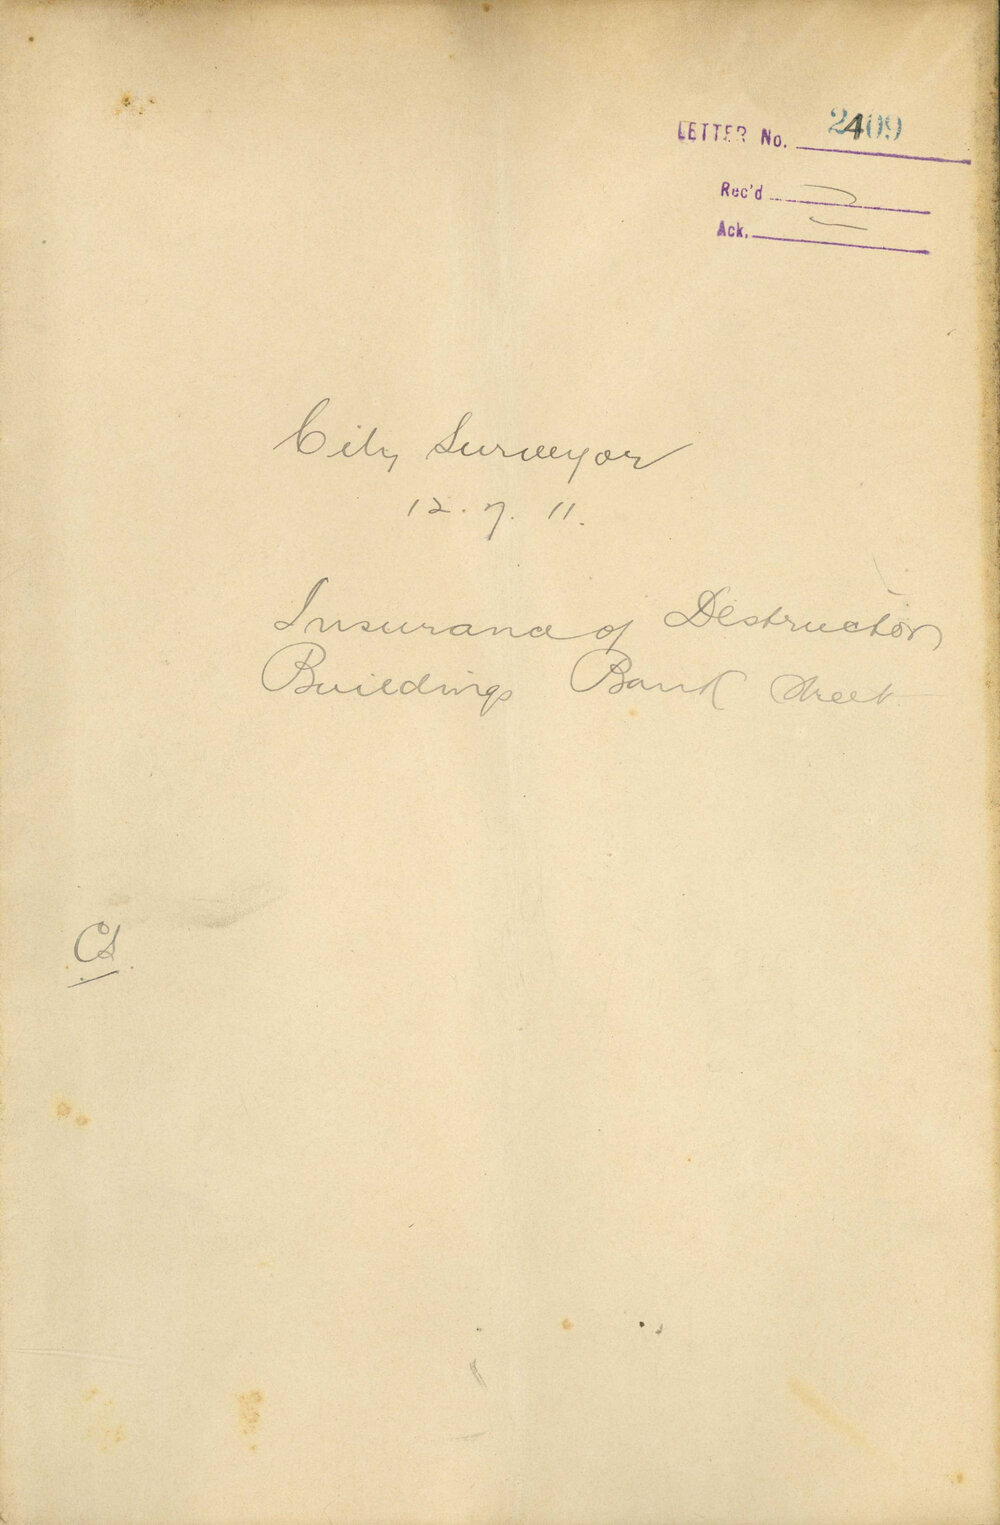 LETTER No. 2409
Rec'd
Ack.
City Surveyor
12.7.11.
Insurance of Destructor
Buildings Bank Street
CS.